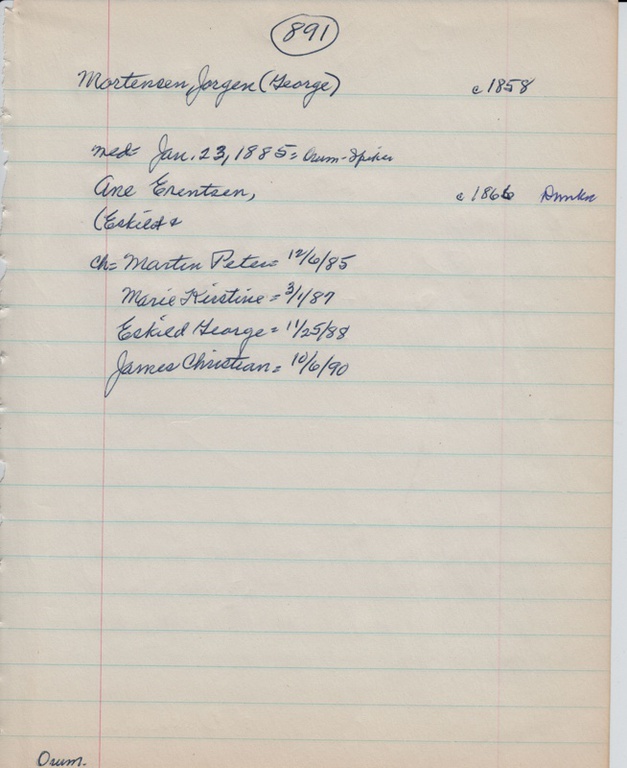 891
Mortensen, Jorgen (George) c1858
med= Jan. 23, 1885= Orum-Spiker
Ane Erentsen, c1866
(Eskild &
ch= Martin Peter= 12/6/85
Marie Kirstine= 3/1/87
Eskild George= 11/25/88
James Christian= 10/6/90
Orum.